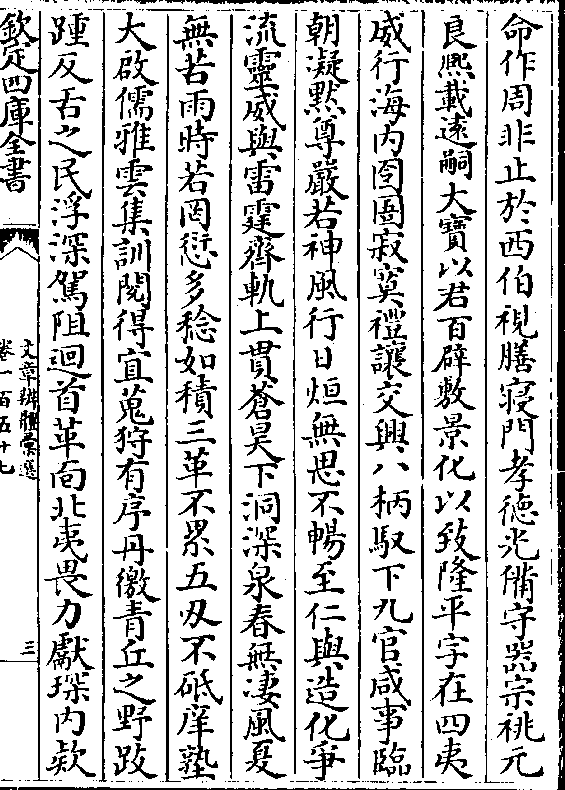 命作周非止於西伯視膳寢門孝德光備守器宗祧元
良熙載遠嗣大寶以君百辟敷景化以致隆平字在四夷
威行海内囹圄寂寞禮讓交興八柄馭下九官咸事臨
朝凝默尊嚴若神風行日烜無思不暢至仁與造化爭
流靈威與雷霆齊軌上貫蒼昊下洞深泉春無凄風夏
無苦雨時若罔愆多稔如積三革不累五刄不砥庠塾
大啟儒雅雲集訓閲得宜蒐狩有序丹徼青丘之野跂
踵反舌之民浮深駕阻迴首革面北夷畏力獻琛内欵
欽定四庫全書
文章辨體彙選
卷一百五十七
三